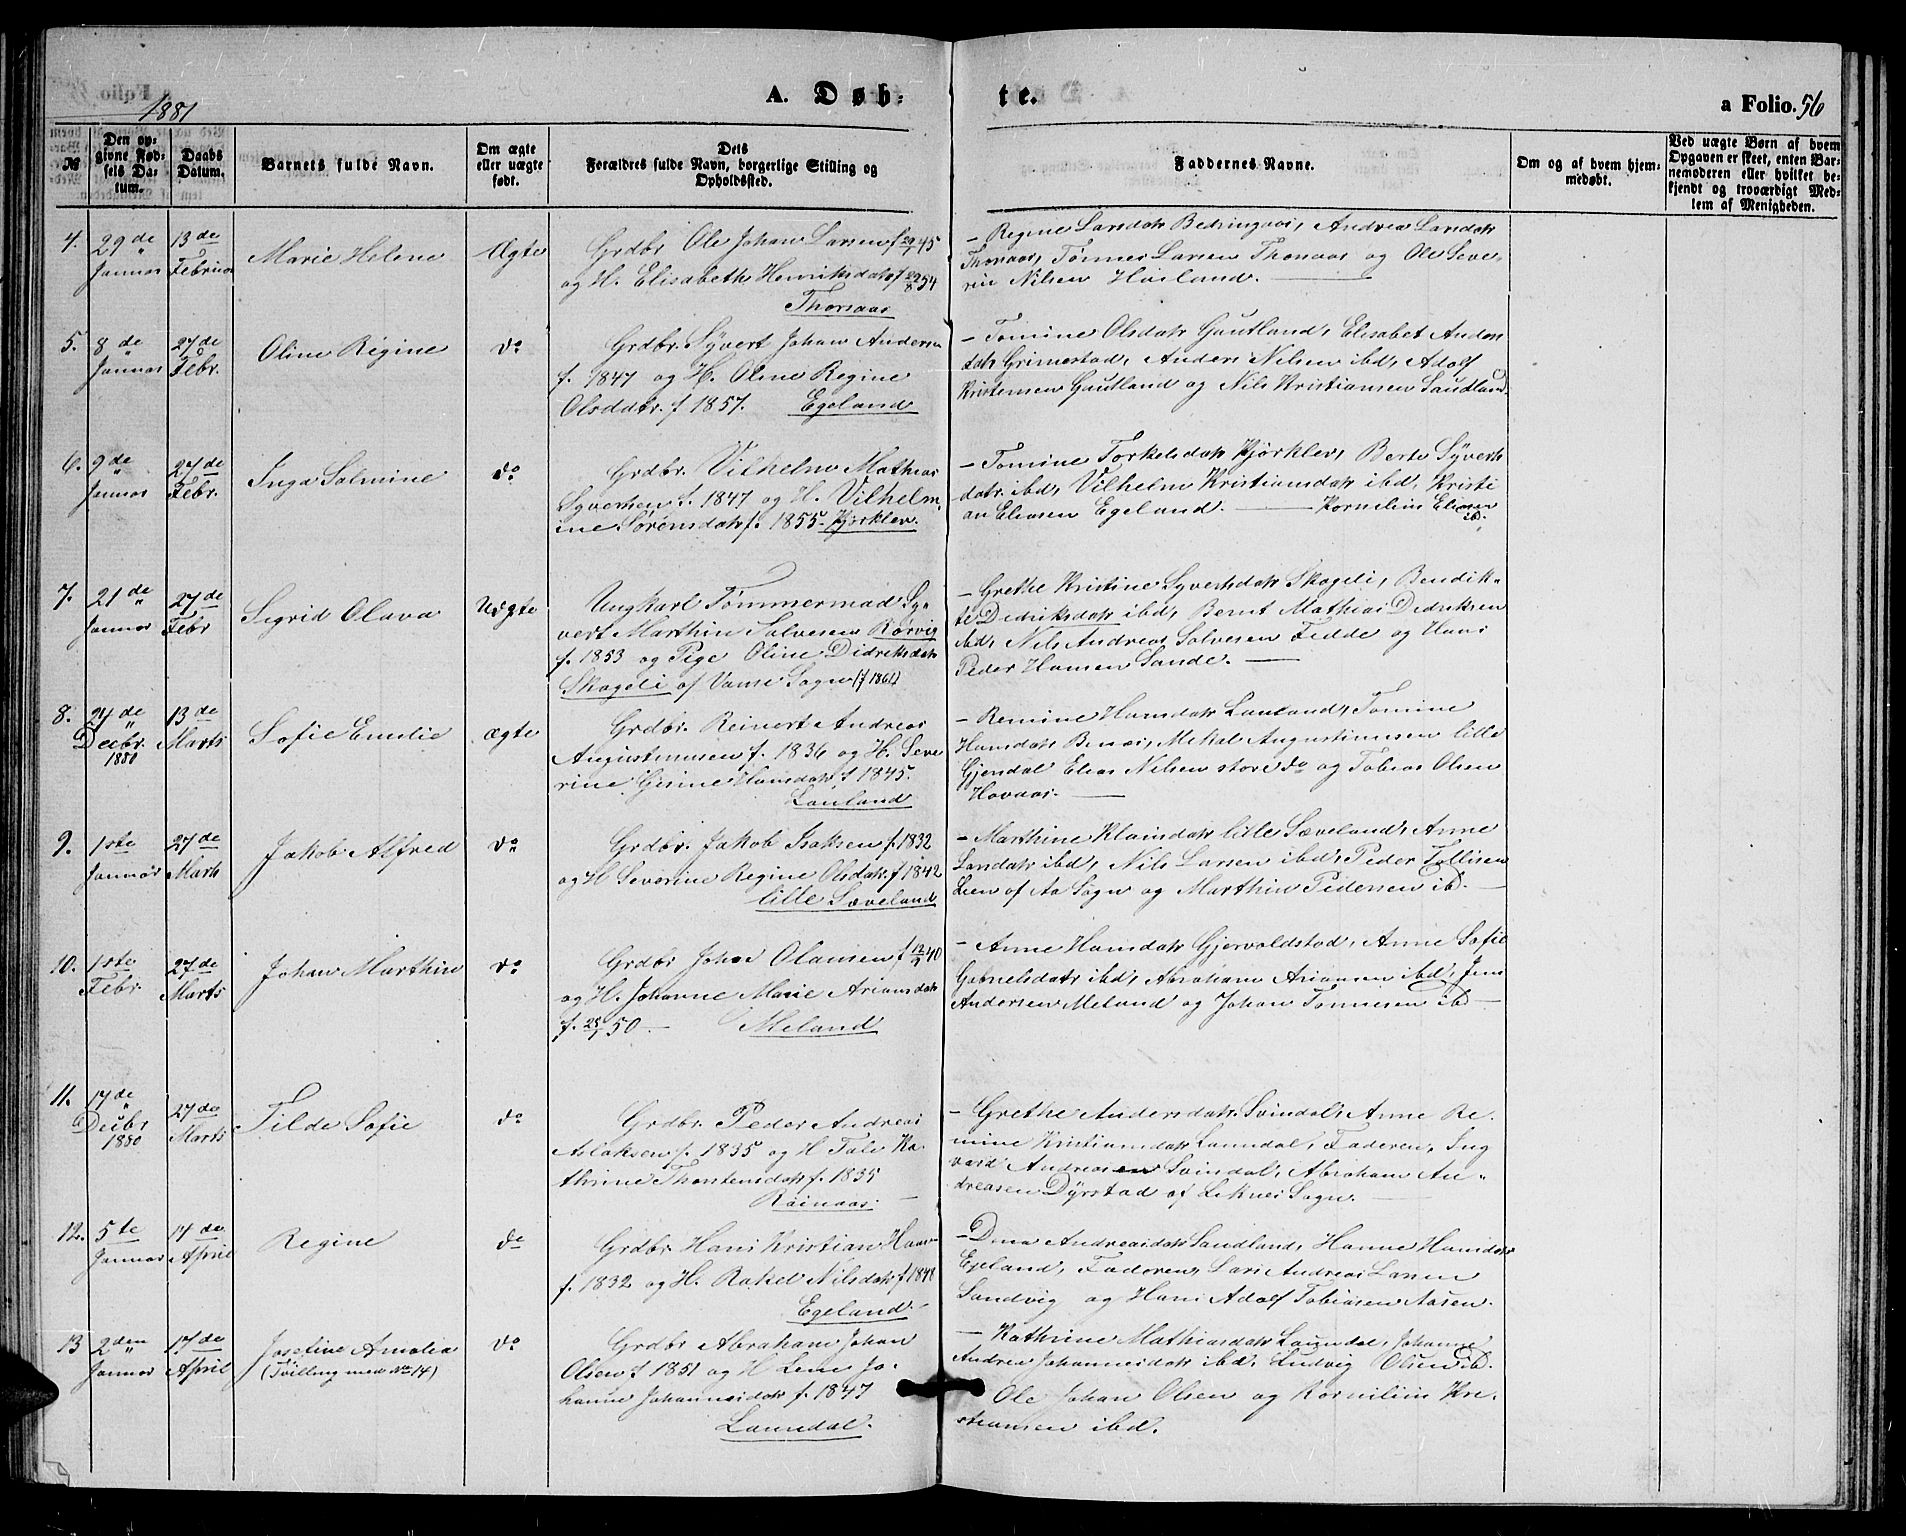 1881
A. Døb-
te.
a Folio. 56
№
Den op-
givne Fød-
sels Da-
tum.
Daabs
Datum.
Barnets fulde Navn.
Om ægte
eller uægte
født.
Dets
Forældres fulde Navn, borgerlige Stilling og
Opholdssted.
Faddernes Navne.
Om og af hvem hjem-
medøbt.
Ved uægte Børn af hvem
Opgaven er skeet, enten Bar-
nemoderen eller hvilket be-
kjendt og troværdigt Med-
lem af Menigheden.
4. 29de Januar
13de Februar
Marie Helene
Ægte
Grdbr Ole Johan Larsen f 29/1 45
og H. Elisabeth Henriksdatr f 22/8 54
Thorsaas
- Regine Larsdatr Bedringaas, Andrea Larsdatr
Thorsaas, Tønnes Larsen Thorsaas og Ole Seve-
rin Nilsen Høiland.
5. 8de Januar
27de Febr.
Oline Regine
do
Grdbr. Syvert Johan Andersen
f. 1847 og H. Oline Regine
Olsddtr. f 1857. Egeland
- Tomine Olsdatr Gautland, Elisabet Anders
datr Grimestad, Anders Nilsen ibd, Adolf
Kristensen Gautland og Nils Kristiansen Saudland.
6. 9de Januar
27de Febr.
Inga Salmine
do
Grdbr. Vilhelm Mathias
Syvertsen f. 1847 og H. Vilhelm-
ine Sørensdatr f. 1855. Hjørklev.
- Tomine Torkelsdatr Hjørklev, Berte Syverts
datr. ibd, Vilhelm Kristiansdatr ibd, Kristi
an Eliasen Egeland. — Kornelius Eliasen
ibd.
7. 21de Januar
27de Febr
Sigrid Olava
Uægte
Ungkarl Tømmermad Sy-
vert Marthin Salvesen Rørvig
f. 1853 og Pige Oline Didriksdatr
Skageli af Vanse Sogn (f 1861)
- Grethe Kristine Syvertsdatr Skageli, Bendik-
te Didriksdatr ibd, Bernt Mathias Didriksen
ibd, Nils Andreas Salvesen Fedde og Hans
Peder Hansen Sande.
8. 24de Decbr. 1880
13de Marts
Sofie Emilie
ægte
Grdbr. Reinert Andreas
Augustinussen f. 1836 og H. Seve
rine Gisine Hansdatr f 1845.
Lauland
- Remine Hansdatr Lauland, Tomine
Hansdatr Benes, Mekal Augustinussen lille
Gjendal Elias Nilsen store do og Tobias Olsen
Hovaas.
9. 1ste Januar
27de Marts
Jakob Alfred
do
Grdbr. Jakob Isaksen f. 1832
og H Severine Regine Olsdatr. f 1842
lille Sæveland
- Marthine Klausdatr lille Sæveland, Anne
Larsdatr ibd, Nils Larsen ibd, Peder Tollisen
Lien af Aa Sogn og Marthin Pedersen ibd.
10. 1ste Febr.
27de Marts
Johan Marthin
do
Grdbr Johan Olausen f 12/2 40
og H. Johanne Marie Ariansdatr
f. 25/1 50 — Meland
- Anne Hansdatr Gjervoldstad, Anne Sofie
Gabrielsdatr ibd, Abraham Ariansen ibd, Jens
Andersen Meland og Johan Tønnesen ibd
11. 17de Decbr 1880
27de Marts
Tilde Sofie
do
Grdbr. Peder Andreas
Aslaksen f. 1835 og H Tale Ka-
thrine Thorstensdatr f. 1835
Røinaas.
- Grethe Andersdatr Svindal, Anne Re-
mine Kristiansdatr Laundal, Faderen, Ing
vard Andreasen Svindal, Abraham An-
dreasen Dyrstad af Liknes Sogn.
12. 5te Januar
14de April
Regine
do
Grdbr. Hans Kristian Hansen
f. 1832 og H. Rakel Nilsdatr f 1848
Egeland
- Dina Andreasdatr Sandland, Hanne Hansdatr
Egeland, Faderen, Lars Andreas Larsen
Sandvig og Hans Adolf Tobiasen Aasen.
13 2den Januar
17de April
Josefine Amalia
(Tvilling med No 14)
do
Grdbr Abraham Johan
Olsen f 1851 og H Lene Jo-
hanne Johannesdatr f. 1847
Laundal.
- Kathrine Mathiasdatr Laundal, Johanne
Andrea Johannesdatr ibd, Ludvig Olsen ibd.
Ole Johan Olsen og Kornelius Kri-
stiansen ibd.